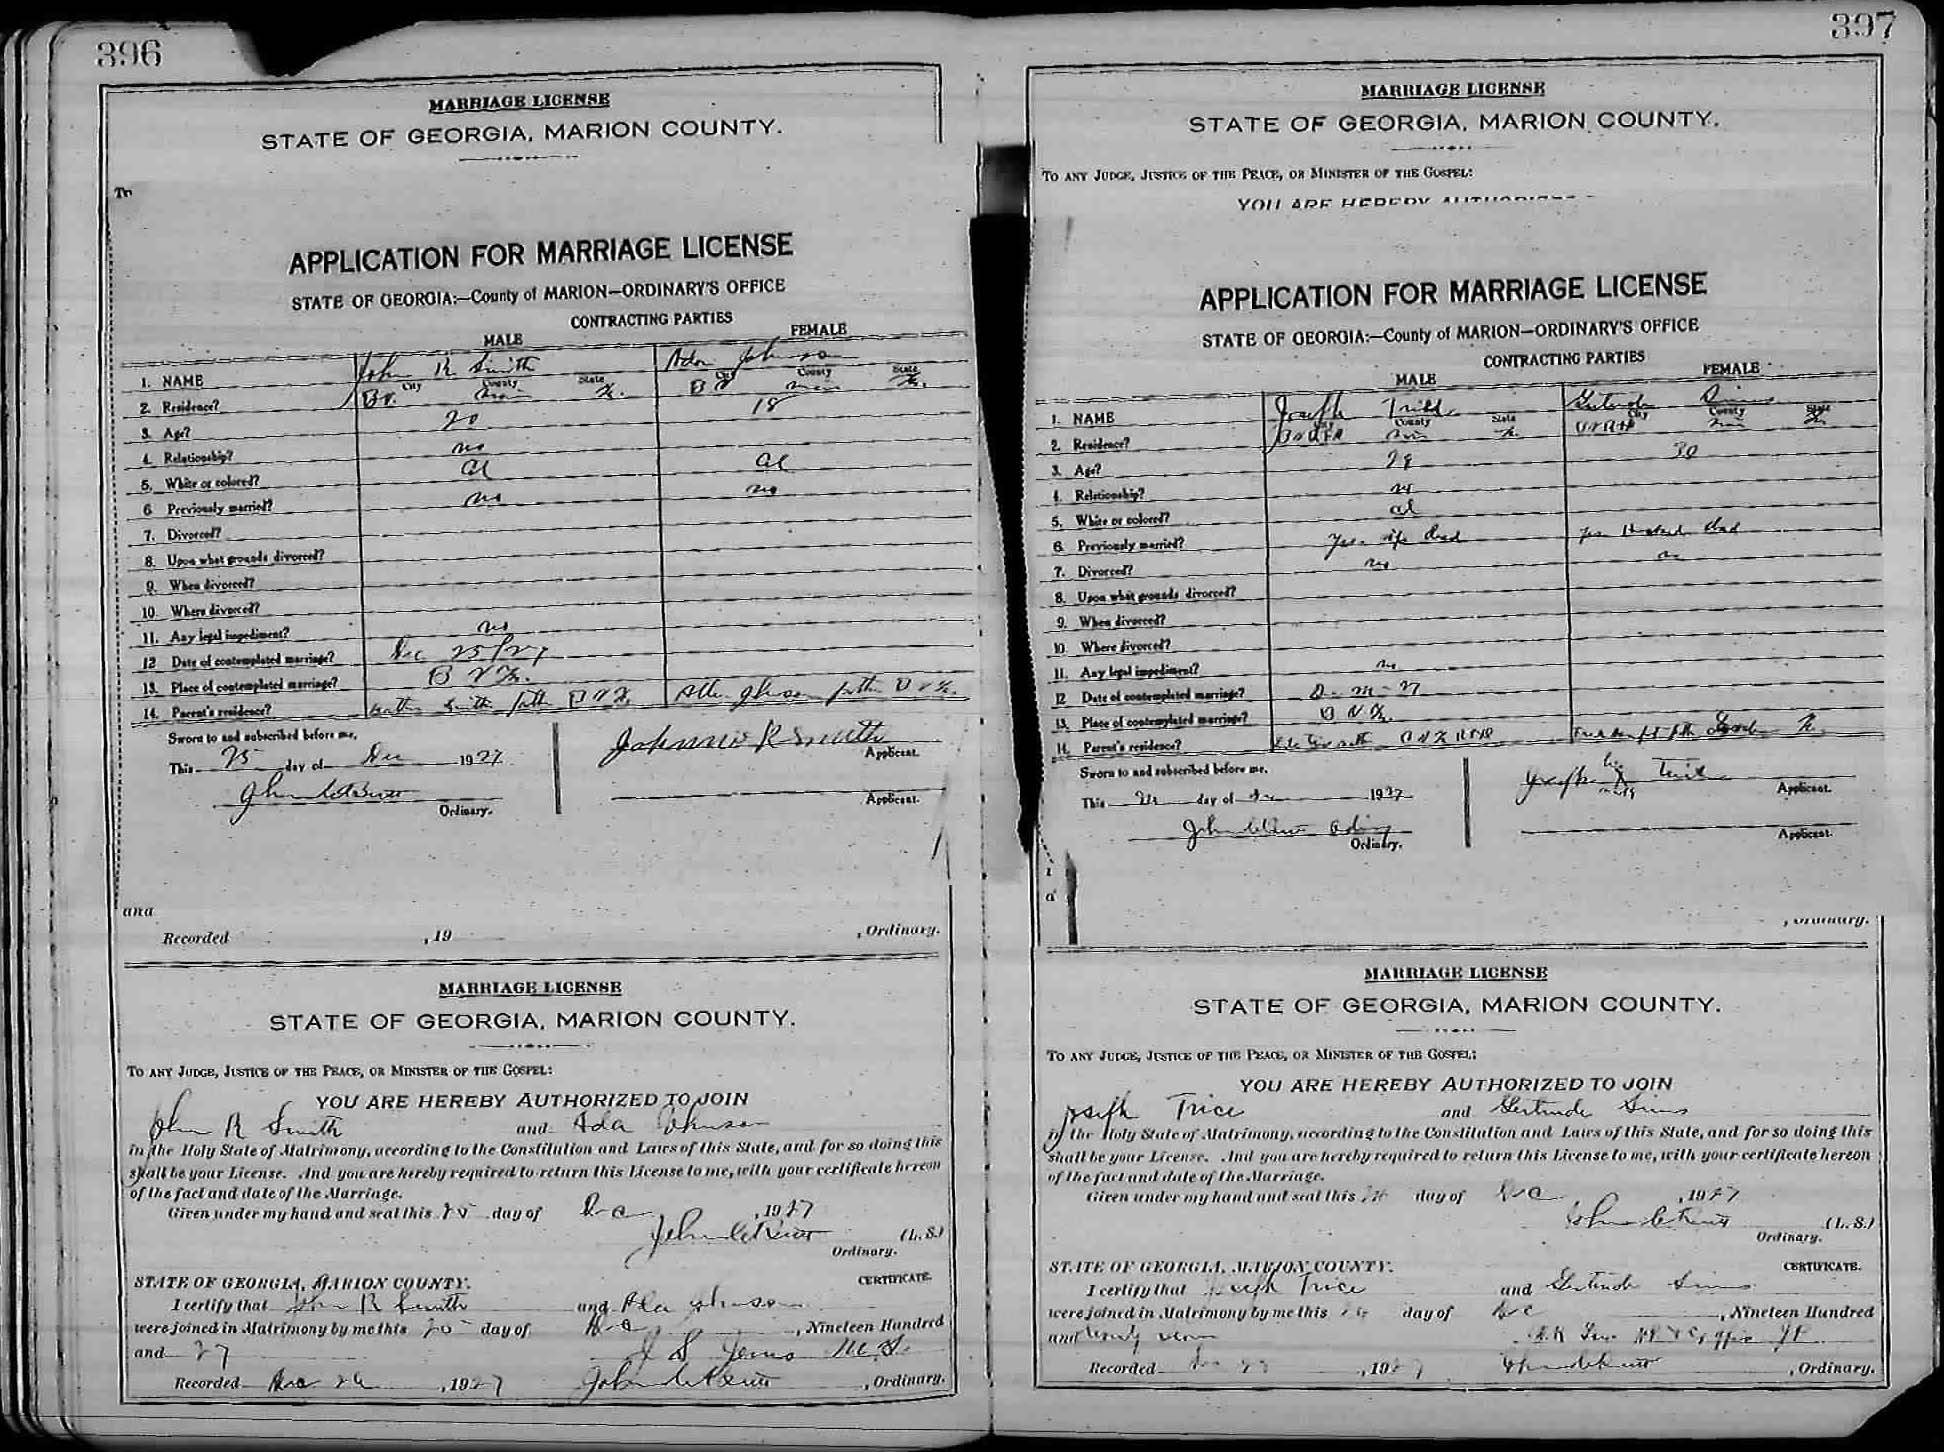 396
MARRIAGE LICENSE
STATE OF GEORGIA, MARION COUNTY.
APPLICATION FOR MARRIAGE LICENSE
STATE OF GEORGIA:—County of MARION—ORDINARY'S OFFICE
CONTRACTING PARTIES
MALE FEMALE
1. NAME John R Smith Ada Johnson
City County State City County State
2. Residence? B V. Ga. B V Ga.
3. Age? 20 18
4. Relationship? no
5. White or colored? Col Col
6 Previously married? no no
7. Divorced?
8. Upon what grounds divorced?
9. When divorced?
10. Where divorced?
11. Any legal impediment? no
12 Date of contemplated marriage? Dec 25/27
13. Place of contemplated marriage? B V Ga.
14. Parent's residence? Smith father B V Ga. Johnson father B V Ga.
Sworn to and subscribed before me,
This 25 day of Dec 1927
Johnnie R Smith
Applicant.
Ordinary.
Applicant.
and
Recorded , 19 , Ordinary.
MARRIAGE LICENSE
STATE OF GEORGIA, MARION COUNTY.
TO ANY JUDGE, JUSTICE OF THE PEACE, OR MINISTER OF THE GOSPEL:
YOU ARE HEREBY AUTHORIZED TO JOIN
John R Smith and Ada Johnson
in the Holy State of Matrimony, according to the Constitution and Laws of this State, and for so doing this
shall be your License. And you are hereby required to return this License to me, with your certificate hereon
of the fact and date of the Marriage.
Given under my hand and seal this 25 day of Dec , 1927
John (L. S.)
Ordinary.
STATE OF GEORGIA, MARION COUNTY. CERTIFICATE.
I certify that John R Smith and Ada Johnson
were joined in Matrimony by me this 25 day of Dec , Nineteen Hundred
and 27 J S
Recorded Dec 26 , 1927 John , Ordinary.
397
MARRIAGE LICENSE
STATE OF GEORGIA, MARION COUNTY.
TO ANY JUDGE, JUSTICE OF THE PEACE, OR MINISTER OF THE GOSPEL:
YOU ARE HEREBY AUTHORIZED
APPLICATION FOR MARRIAGE LICENSE
STATE OF GEORGIA:—County of MARION—ORDINARY'S OFFICE
CONTRACTING PARTIES
MALE FEMALE
1. NAME Joseph Gertrude Sims
City County State City County State
2. Residence? Ga. Ga.
3. Age? 30
4. Relationship? no
5. White or colored? Col
6 Previously married? Yes wife dead Yes Husband dead
7. Divorced? no no
8. Upon what grounds divorced?
9. When divorced?
10. Where divorced?
11. Any legal impediment? no
12 Date of contemplated marriage?
13. Place of contemplated marriage? B V Ga.
14. Parent's residence? Ga.
Sworn to and subscribed before me,
This day of 1927
Joseph his x mark
Applicant.
John
Ordinary.
Applicant.
, Ordinary.
MARRIAGE LICENSE
STATE OF GEORGIA, MARION COUNTY.
TO ANY JUDGE, JUSTICE OF THE PEACE, OR MINISTER OF THE GOSPEL:
YOU ARE HEREBY AUTHORIZED TO JOIN
Joseph Trice and Gertrude Sims
in the Holy State of Matrimony, according to the Constitution and Laws of this State, and for so doing this
shall be your License. And you are hereby required to return this License to me, with your certificate hereon
of the fact and date of the Marriage.
Given under my hand and seal this day of Dec , 1927
John (L. S.)
Ordinary.
STATE OF GEORGIA, MARION COUNTY. CERTIFICATE.
I certify that Joseph Trice and Gertrude Sims
were joined in Matrimony by me this day of Dec , Nineteen Hundred
and twenty seven
Recorded , 1927 John , Ordinary.